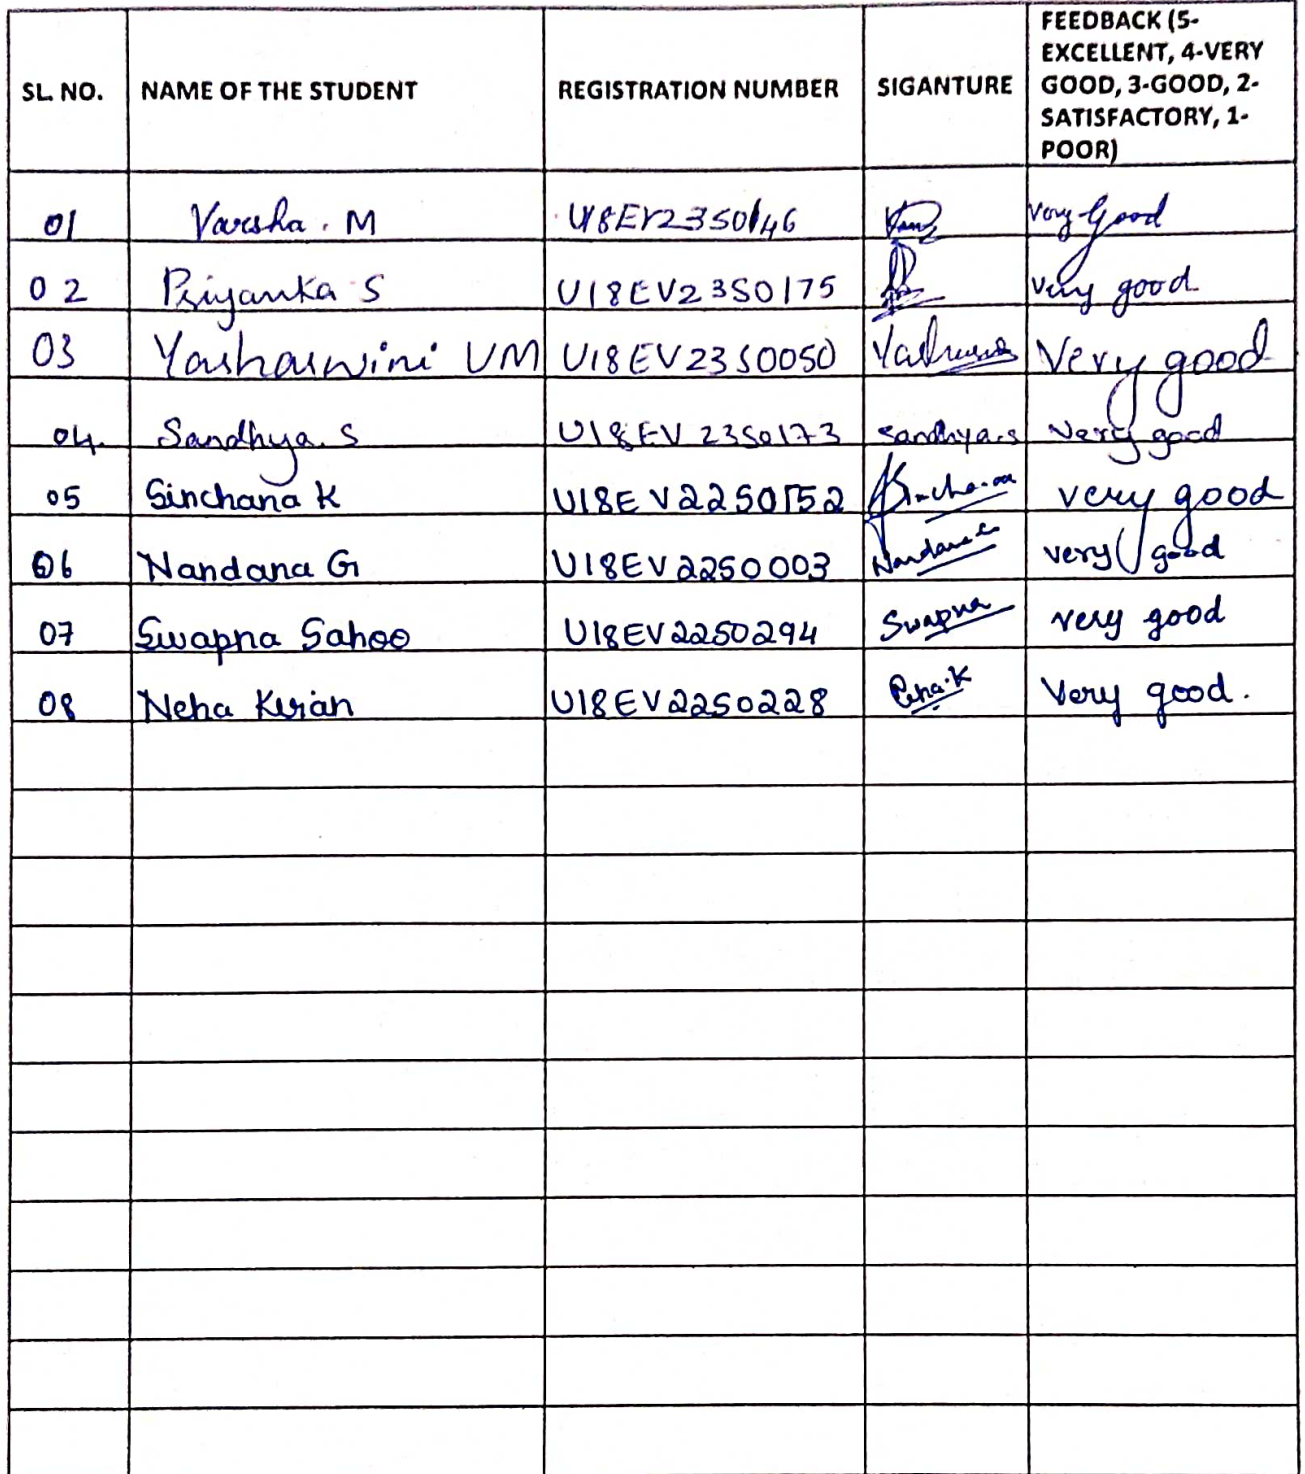 SL. NO. NAME OF THE STUDENT REGISTRATION NUMBER SIGANTURE FEEDBACK (5-
EXCELLENT, 4-VERY
GOOD, 3-GOOD, 2-
SATISFACTORY, 1-
POOR)
01 Varsha. M U18EV23S0146 Very Good
02 Priyanka S U18EV23S0175 Very good
03 Yashaswini UM U18EV23S0050 Very good
04. Sandhya. S U18EV23S0173 Sandhya.S Very good
05 Sinchana K U18EV22S0152 Sinchana very good
06 Nandana G U18EV22S0003 Nandana G very good
07 Swapna Sahoo U18EV22S0294 Swapna very good
08 Neha Kiran U18EV22S0228 Very good.